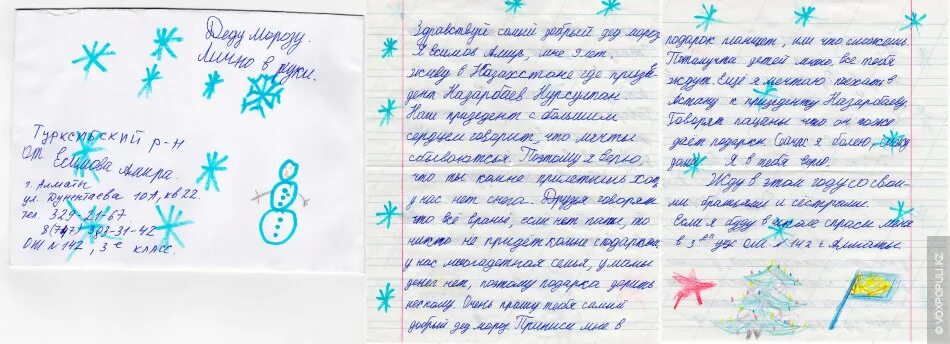 Деду Морозу.
Лично в руки.
Турксибский р-н
от Есимова Амира.
г. Алматы
ул. Дунентаева 10А, кв 22.
тел. 329-21-67
8(747) 303-31-42
ОШ N 142, 3 "е" класс.
Здравствуй самий добрый дед мороз
Я Есимов Амир, мне 9 лет.
живу в Казахстане где призе
дент Назарбаев Нурсултан.
Наш призедент с большим
сердцем говорит, что мечты
сбываются. Поэтому я верю,
что ты комне прилетишь хоть
у нас нет снега. Друзя говорят
что всё враньё, если нет папы, то
никто не придет комне сподарком
у нас многодетная семья, у мамы
денег нет, поэтому подарка дарить
некому. Очень прашу тебя самий
добрый дед мороз Принеси мне в
подарок планшет, или что сможешь.
Потамучта детей много. Все тебя
ждут. Ещё я мечтаю поехать в
Астану к призиденту Назарбаеву.
Говорят пацаны что он тоже
дает подарки. Сейчас я болею, сижу
дома. Я в тебя верю.
Жду в этом году со свои-
ми братьями и сестрами.
Если я буду в школе спроси меня
в 3 "е" ОШ N 142 г. Алматы.
© VOXPOPULI.KZ